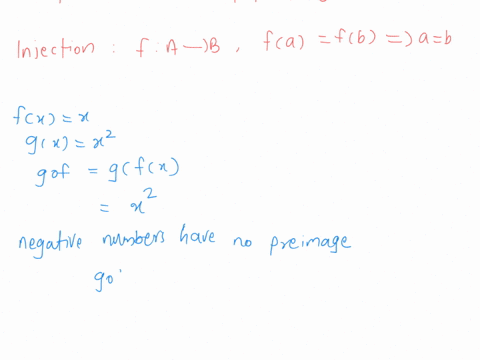 Injection : f : A—>B , f(a) = f(b) => a=b
f(x) = x
g(x) = x²
gof = g(f(x)
= x²
negative numbers have no preimage
go